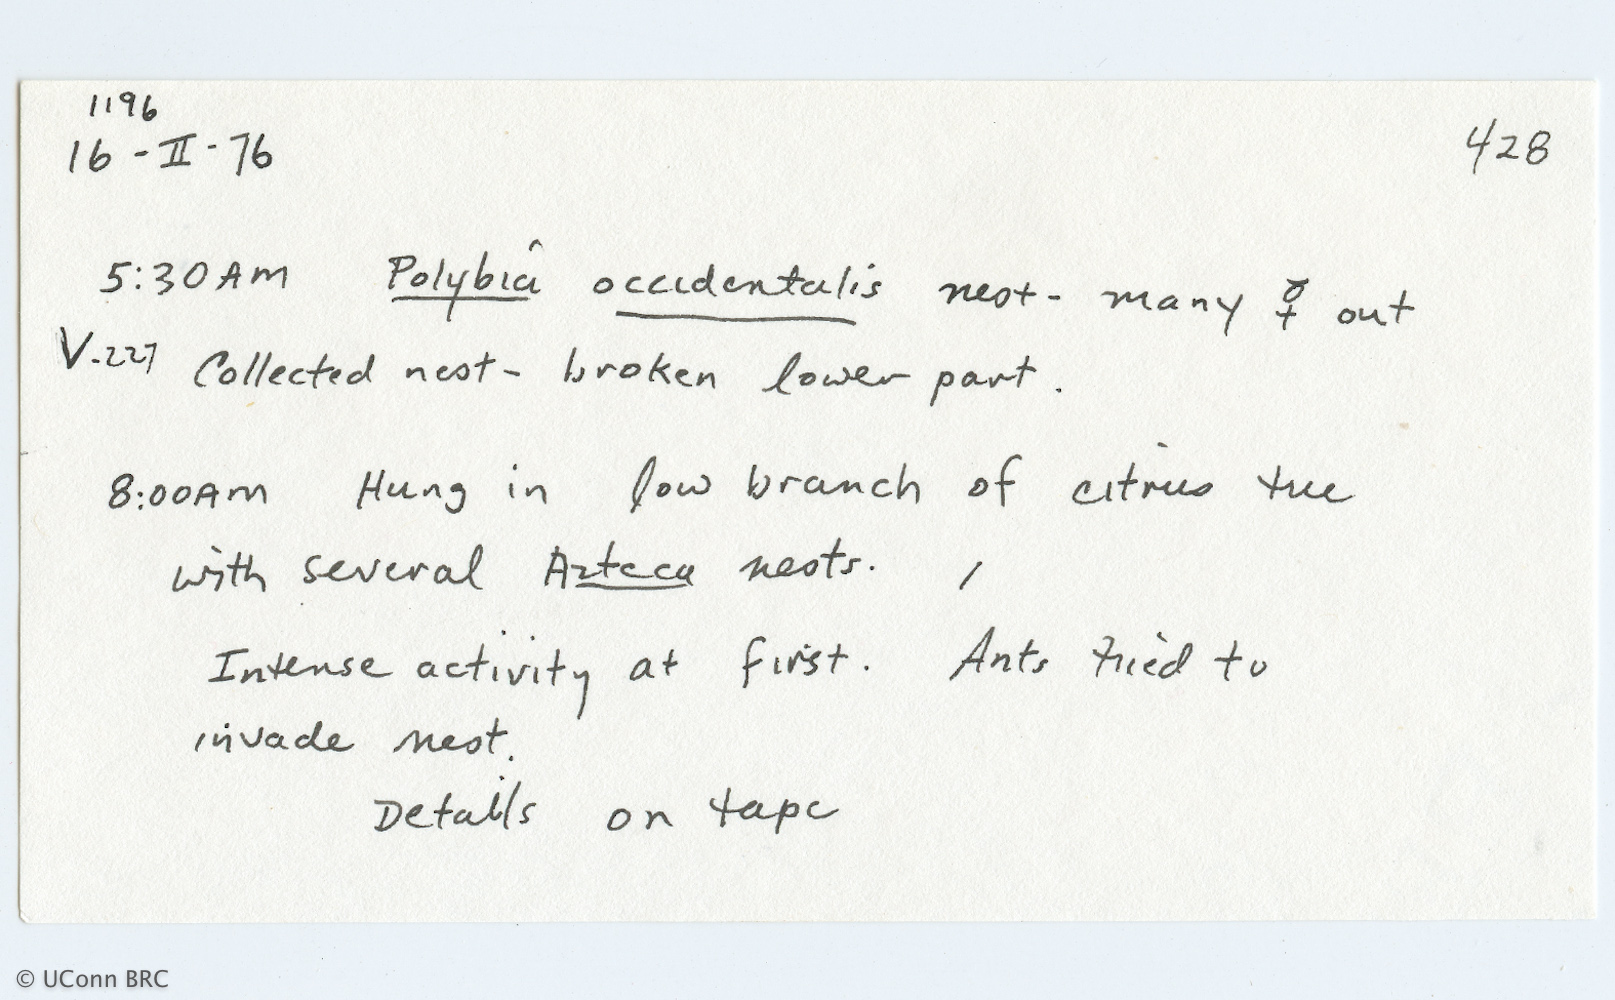 1196
16-II-76
428
5:30AM Polybia occidentalis nest- many ☿ out
V-227 Collected nest- broken lower part.
8:00AM Hung in low branch of citrus tree
with several Azteca nests.
Intense activity at first. Ants tried to
invade nest.
Details on tape
© UConn BRC